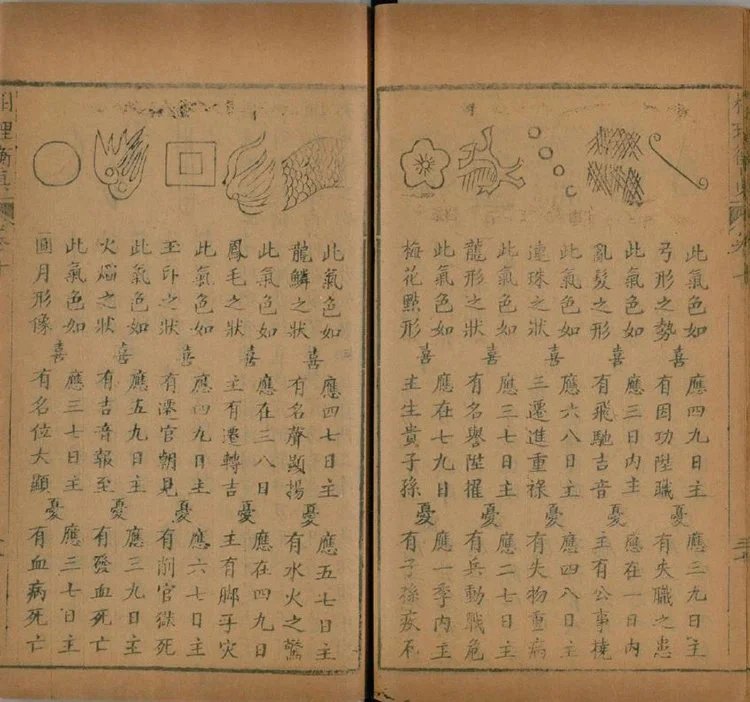 此氣色如
弓形之勢
喜
應四九日主
有因功陞職
憂
應三九日主
有失職之患
此氣色如
亂髮之形
喜
應三日內主
有飛馳吉音
憂
應在一日內
主有公事撓
此氣色如
連珠之狀
喜
應六八日主
三遷進重祿
憂
應四八日主
有失物重病
此氣色如
龍形之狀
喜
應三七日主
有名譽陞擢
憂
應二七日主
有兵動戰危
此氣色如
梅花點形
喜
應在七九日
主生貴子孫
憂
應一季內主
有子孫疾厄
此氣色如
龍鱗之狀
喜
應四七日主
有名齊顯揚
憂
應五七日主
有水火之驚
此氣色如
鳳毛之狀
喜
應在三八日
主有遷轉吉
憂
應在四九日
主有脚手灾
此氣色如
玉印之狀
喜
應四九日主
有遷官朝見
憂
應六七日主
有削官獄死
此氣色如
火焰之狀
喜
應五九日主
有吉音報至
憂
應三九日主
有發血死亡
此氣色如
圓月形像
喜
應三七日主
有名位大顯
憂
應三七日主
有血病死亡
相理衡真